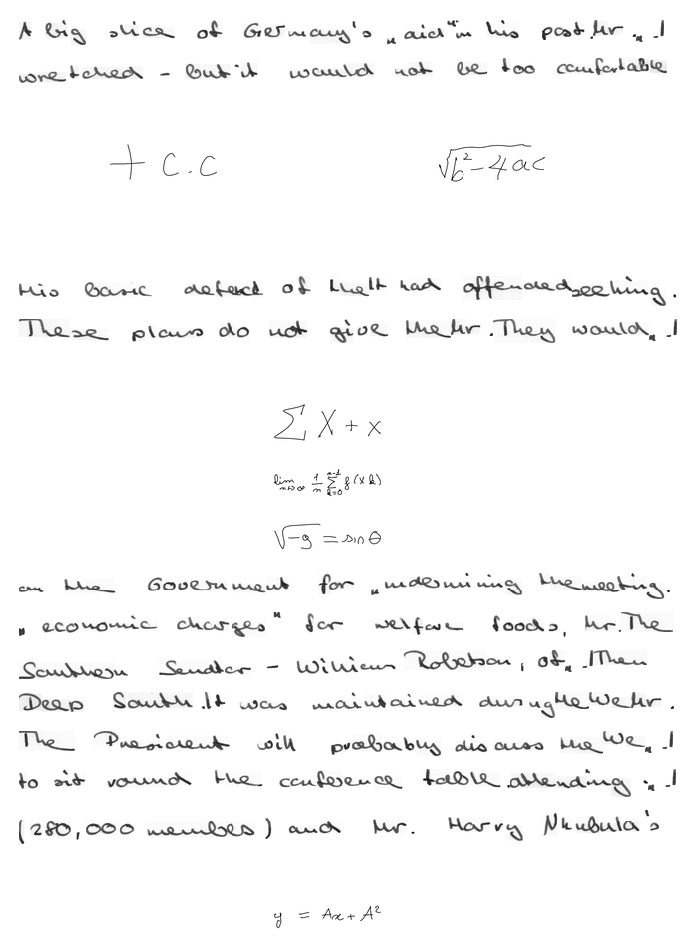 A big slice of Germany's "aid" in his past. Mr. "I
wretched - but it would not be too comfortable
+ C.C
√(b²-4ac)
His basic defect of that had offended seeking.
These plans do not give the Mr. They would "I
∑ X + x
lim n→∞ 1/n ∑ k=0 n-1 f(xk)
√-g = sin θ
on the Government for "undermining the meeting.
"economic charges" for welfare foods, Mr. The
Southern Senator - William Robetson, of. I Then
Deep South. It was maintained during the We Mr.
The President will probably discuss the We "I
to sit round the conference table. attending "I
(280,000 membes) and Mr. Harry Nkubula's
y = Ax + A²